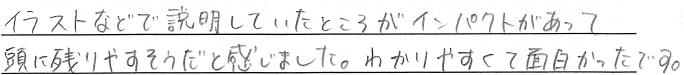 イラストなどで説明していたところがインパクトがあって
頭に残りやすそうだと感じました。わかりやすくて面白かったです。